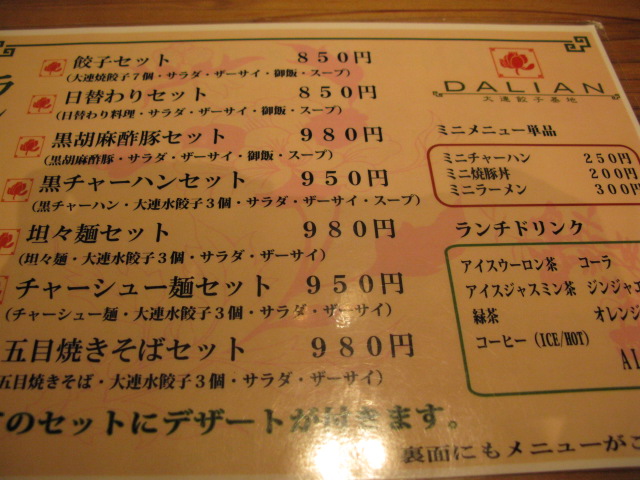 餃子セット 850円
(大連焼餃子7個・サラダ・ザーサイ・御飯・スープ)
日替わりセット 850円
(日替わり料理・サラダ・ザーサイ・御飯・スープ)
黒胡麻酢豚セット 980円
(黒胡麻酢豚・サラダ・ザーサイ・御飯・スープ)
黒チャーハンセット 950円
(黒チャーハン・大連水餃子3個・サラダ・ザーサイ・スープ)
坦々麺セット 980円
(坦々麺・大連水餃子3個・サラダ・ザーサイ)
チャーシュー麺セット 950円
(チャーシュー麺・大連水餃子3個・サラダ・ザーサイ)
五目焼きそばセット 980円
五目焼きそば・大連水餃子3個・サラダ・ザーサイ)
のセットにデザートが付きます。
DALIAN
大連餃子基地
ミニメニュー単品
ミニチャーハン 250円
ミニ焼豚丼 200円
ミニラーメン 300円
ランチドリンク
アイスウーロン茶 コーラ
アイスジャスミン茶 ジンジャエ
緑茶 オレンジ
コーヒー(ICE/HOT)
裏面にもメニューが